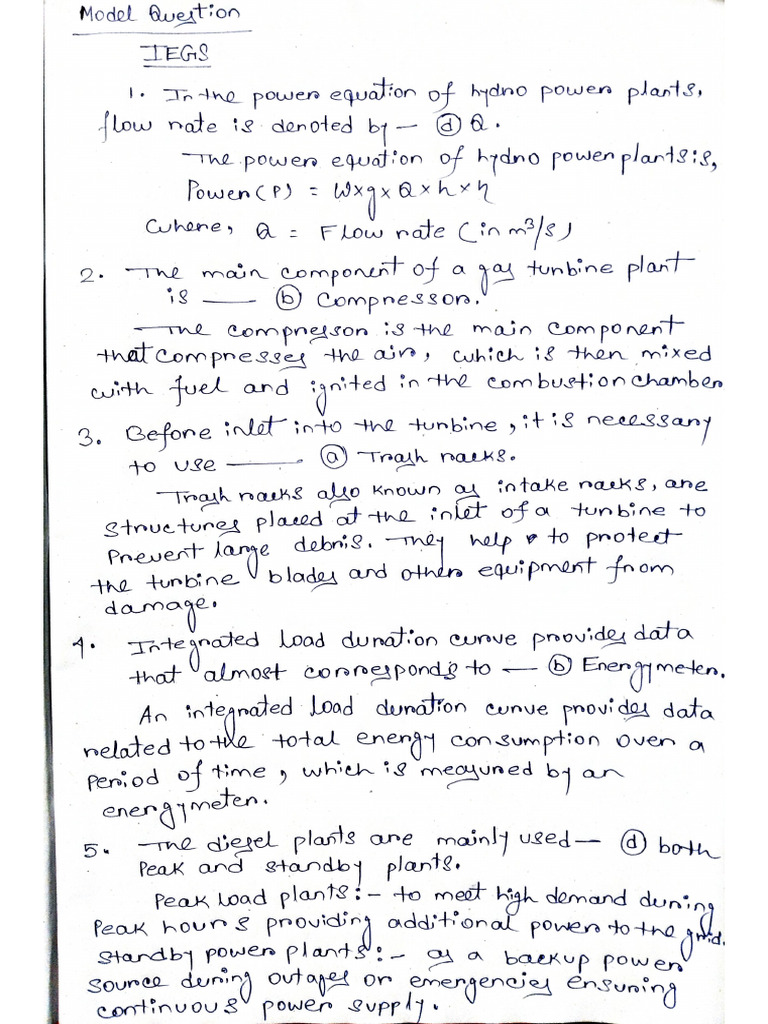 Model Question
IEGS
1. In the power equation of hydro power plants,
flow rate is denoted by — ⓓ Q.
The power equation of hydro power plants is,
Power (P) = W×g×Q×h×η
where, Q = Flow rate (in m³/s)
2. The main component of a gas turbine plant
is —— ⓑ Compressor.
The compressor is the main component
that compresses the air, which is then mixed
with fuel and ignited in the combustion chamber
3. Before inlet into the turbine, it is necessary
to use —— ⓐ Trash racks.
Trash racks also known as intake racks, are
structures placed at the inlet of a turbine to
Prevent large debris. They help to protect
the turbine blades and other equipment from
damage.
4. Integrated load duration curve provides data
that almost corresponds to — ⓑ Energymeter.
An integrated load duration curve provides data
related to the total energy consumption over a
period of time, which is measured by an
energymeter.
5. The diesel plants are mainly used — ⓓ both
Peak and standby plants.
Peak load plants:- to meet high demand during
Peak hours providing additional power to the grid.
Standby power plants:- as a backup power
source during outages or emergencies ensuring
continuous power supply.